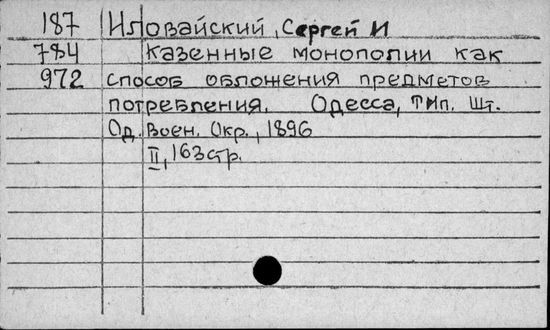 187 Иловайский, Сергей И
784 Казенные монополии как
972 способ обложения предметов
потребления. Одесса, тип. Шт.
Од. Воен. Окр., 1896
II, 163 стр.